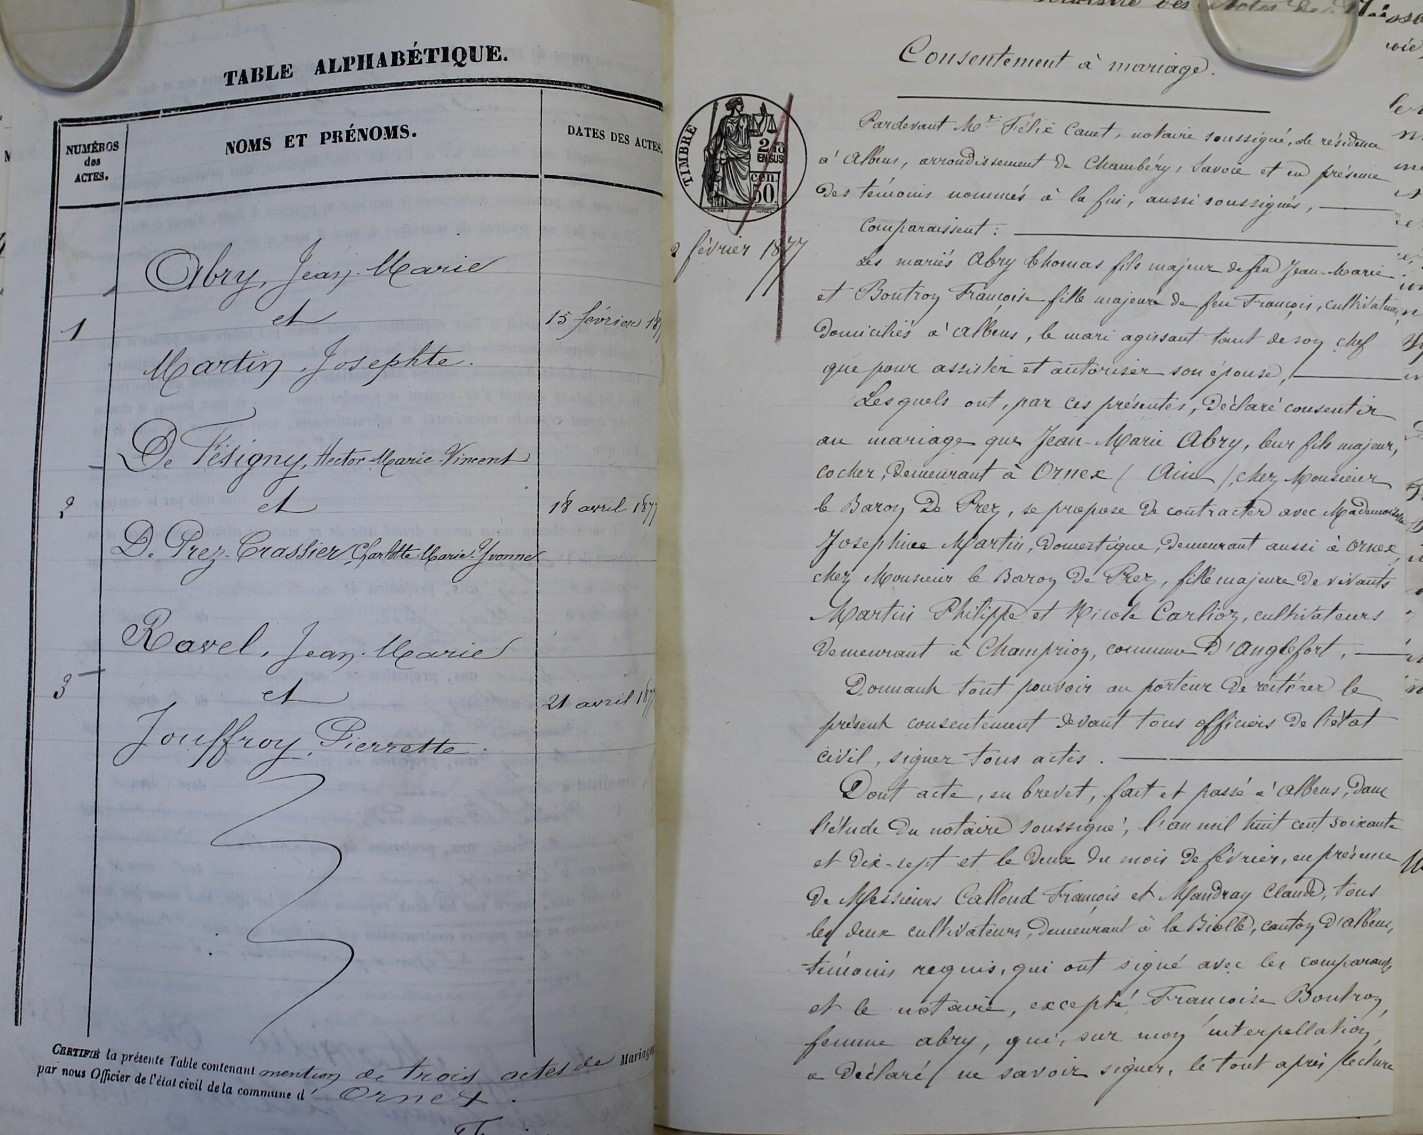 TABLE ALPHABÉTIQUE.
NUMÉROS
des
ACTES.
NOMS ET PRÉNOMS.
DATES DES ACTES.
Abry, Jean-Marie
1
et
15 février 187
Martin, Josephte.
De Fésigny, Hector Marie Vincent
2
et
18 avril 1877
De Prez-Crassier, Charlotte Marie Yvonne
Ravel, Jean-Marie
3
et
21 avril 187
Jouffroy, Pierrette.
CERTIFIÉ la présente Table contenant mention de trois actes de Mariage
par nous Officier de l'état civil de la commune d' Ornex.
Consentement à mariage.
TIMBRE
2/10
EN SUS
50 cen
2 février 1877
Pardevant Mr Félix Canet, notaire soussigné, de résidence
à Albens, arrondissement de Chambéry, Savoie et en présence
des témoins nommés à la fin, aussi soussignés,
Comparaissent :
Les mariés Abry Thomas fils majeur de feu Jean-Marie
et Boutroy Françoise fille majeure de feu François, cultivateurs,
domiciliés à Albens, le mari agissant tant de son chef
que pour assister et autoriser son épouse,
Lesquels ont, par ces présentes, déclaré consentir
au mariage que Jean-Marie Abry, leur fils majeur,
cocher, demeurant à Ornex (Ain), chez Monsieur
le Baron De Prez, se propose de contracter avec Mademoiselle
Josephine Martin, domestique, demeurant aussi à Ornex,
chez Monsieur le Baron de Prez, fille majeure de vivants
Martin Philippe et Nicole Carlioz, cultivateurs
demeurant à Champrion, commune D'Anglefort,
Donnant tout pouvoir au porteur de réitérer le
présent consentement devant tous officiers de l'état
civil, signer tous actes.
Dont acte, en brevet, fait et passé à Albens, dans
l'étude du notaire soussigné, l'an mil huit cent soixante
et dix-sept et le deux du mois de février, en présence
de Messieurs Calloud François et Mandray Claude, tous
les deux cultivateurs, demeurant à la Biolle, canton d'Albens,
témoins requis, qui ont signé avec les comparants
et le notaire, excepté Francoise Boutroy,
femme Abry, qui, sur mon interpellation,
a déclaré ne savoir signer, le tout après lecture